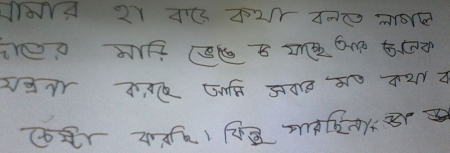 আমার হা করে কথা বলতে লাগলে
দাঁতের মাড়ি ভেঙে যাচ্ছে আর অনেক
যন্ত্রনা করছে আমি সবার মত কথা ব
চেষ্টা করছি। কিন্তু পারছিনা।